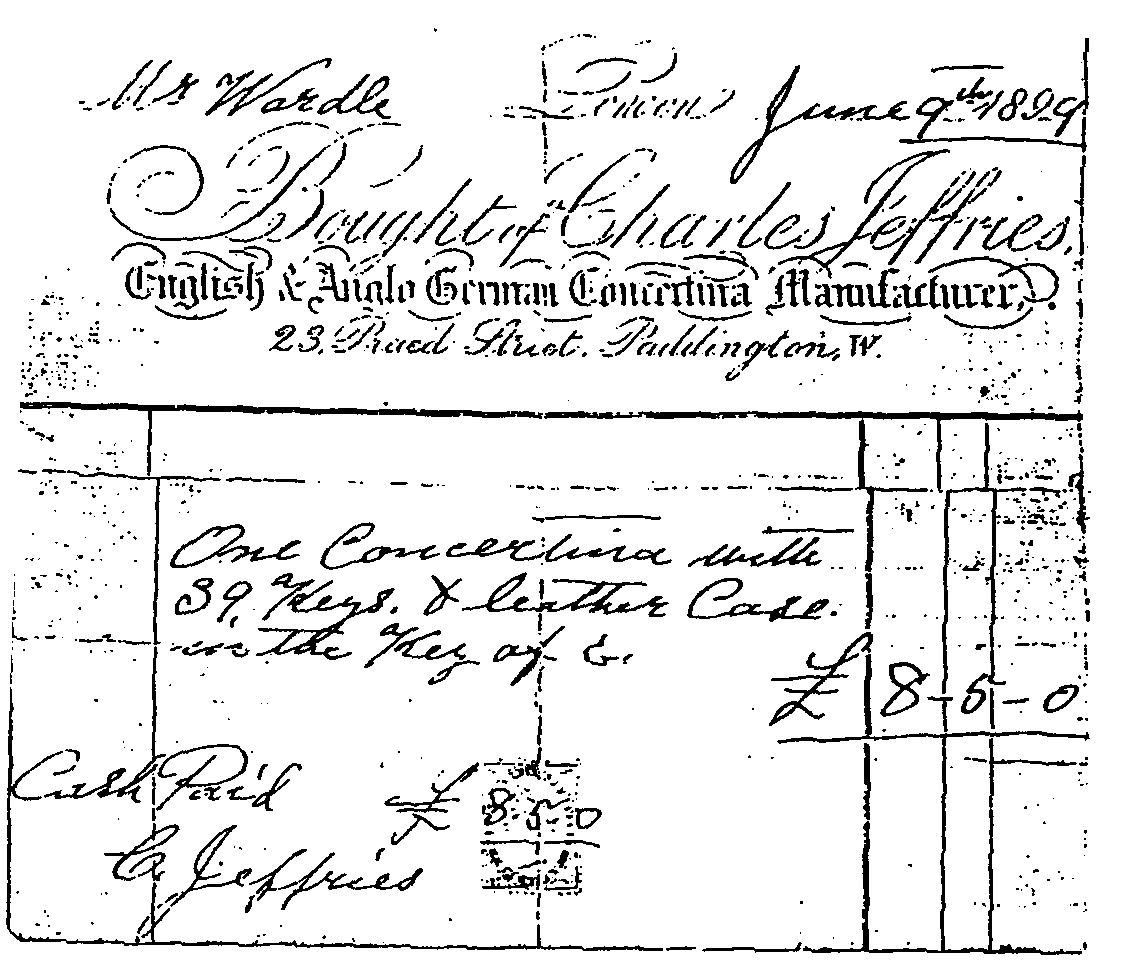 Mr Wardle London June 9th 1899
Bought of Charles Jeffries,
English & Anglo German Concertina Manufacturer,
23, Praed Street. Paddington, W.
One Concertina with
39, Keys. & leather Case.
in the Key of
£ 8-5-0
Cash Paid £ 8-5-0
C. Jeffries